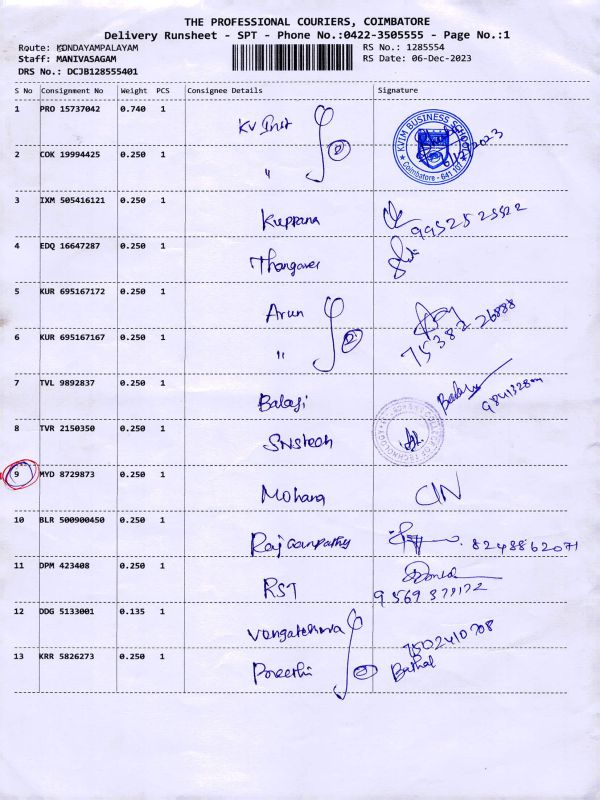 THE PROFESSIONAL COURIERS, COIMBATORE
Delivery Runsheet - SPT - Phone No.:0422-3505555 - Page No.:1
Route: KONDAYAMPALAYAM RS No.: 1285554
Staff: MANIVASAGAM RS Date: 06-Dec-2023
DRS No.: DCJB128555401
S No Consignment No Weight PCS Consignee Details Signature
1 PRO 15737042 0.740 1 KV Inst KVIM BUSINESS SCHOOL Coimbatore - 641 107
2 COK 19994425 0.250 1 "
3 IXM 505416121 0.250 1 Kuppana
4 EDQ 16647287 0.250 1 Thangavel
5 KUR 695167172 0.250 1 Arun
6 KUR 695167167 0.250 1 " 75382 26888
7 TVL 9892837 0.250 1 Balaji
8 TVR 2150350 0.250 1 SNStech
9 MYD 8729873 0.250 1 Mohana CIN
10 BLR 500900450 0.250 1 Raj Ganpathy 8248862071
11 DPM 423408 0.250 1 RST
12 DDG 5133001 0.135 1
13 KRR 5826273 0.250 1 Preethi